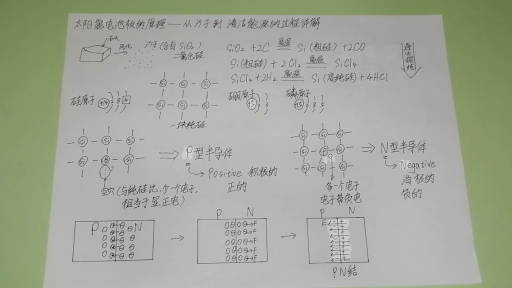 太阳能电池板的原理——从力子到清洁能源的过程详解
石头
风化
力子(含有SiO₂)
二氧化硅
SiO₂ + 2C 高温 Si(粗硅) + 2CO
Si(粗硅) + 2Cl₂ 高温 SiCl₄
SiCl₄ + 2H₂ 高温 Si(高纯硅) + 4HCl
硅原子
一块纯硅
硼原子
磷原子
P型半导体
Positive 积极的
正的
空穴(与纯硅比,少个电子,
相当于显正电)
N型半导体
Negative
消极的
负的
多一个电子
电子带负电
P N
P N
P N
PN结